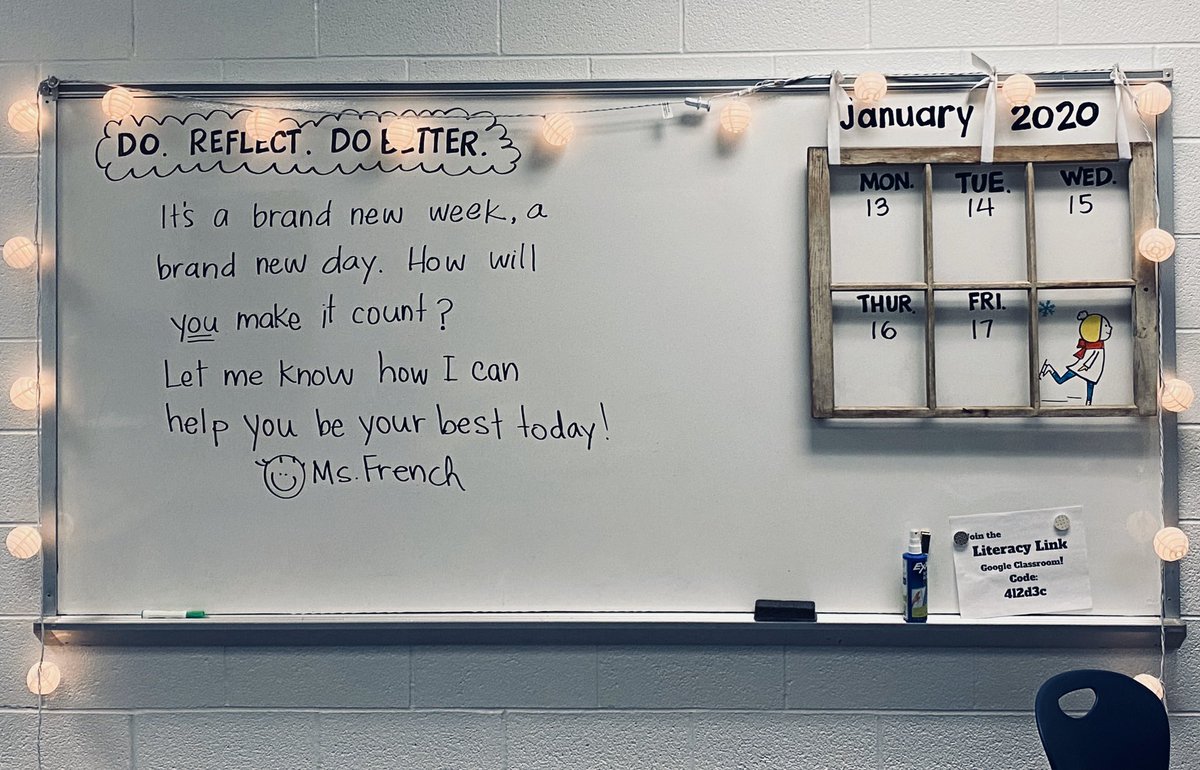 DO. REFLECT. DO BETTER.
It's a brand new week, a
brand new day. How will
you make it count?
Let me know how I can
help you be your best today!
Ms. French
January 2020
MON. TUE. WED.
13 14 15
THUR. FRI.
16 17
Join the
Literacy Link
Google Classroom!
Code:
4l2d3c